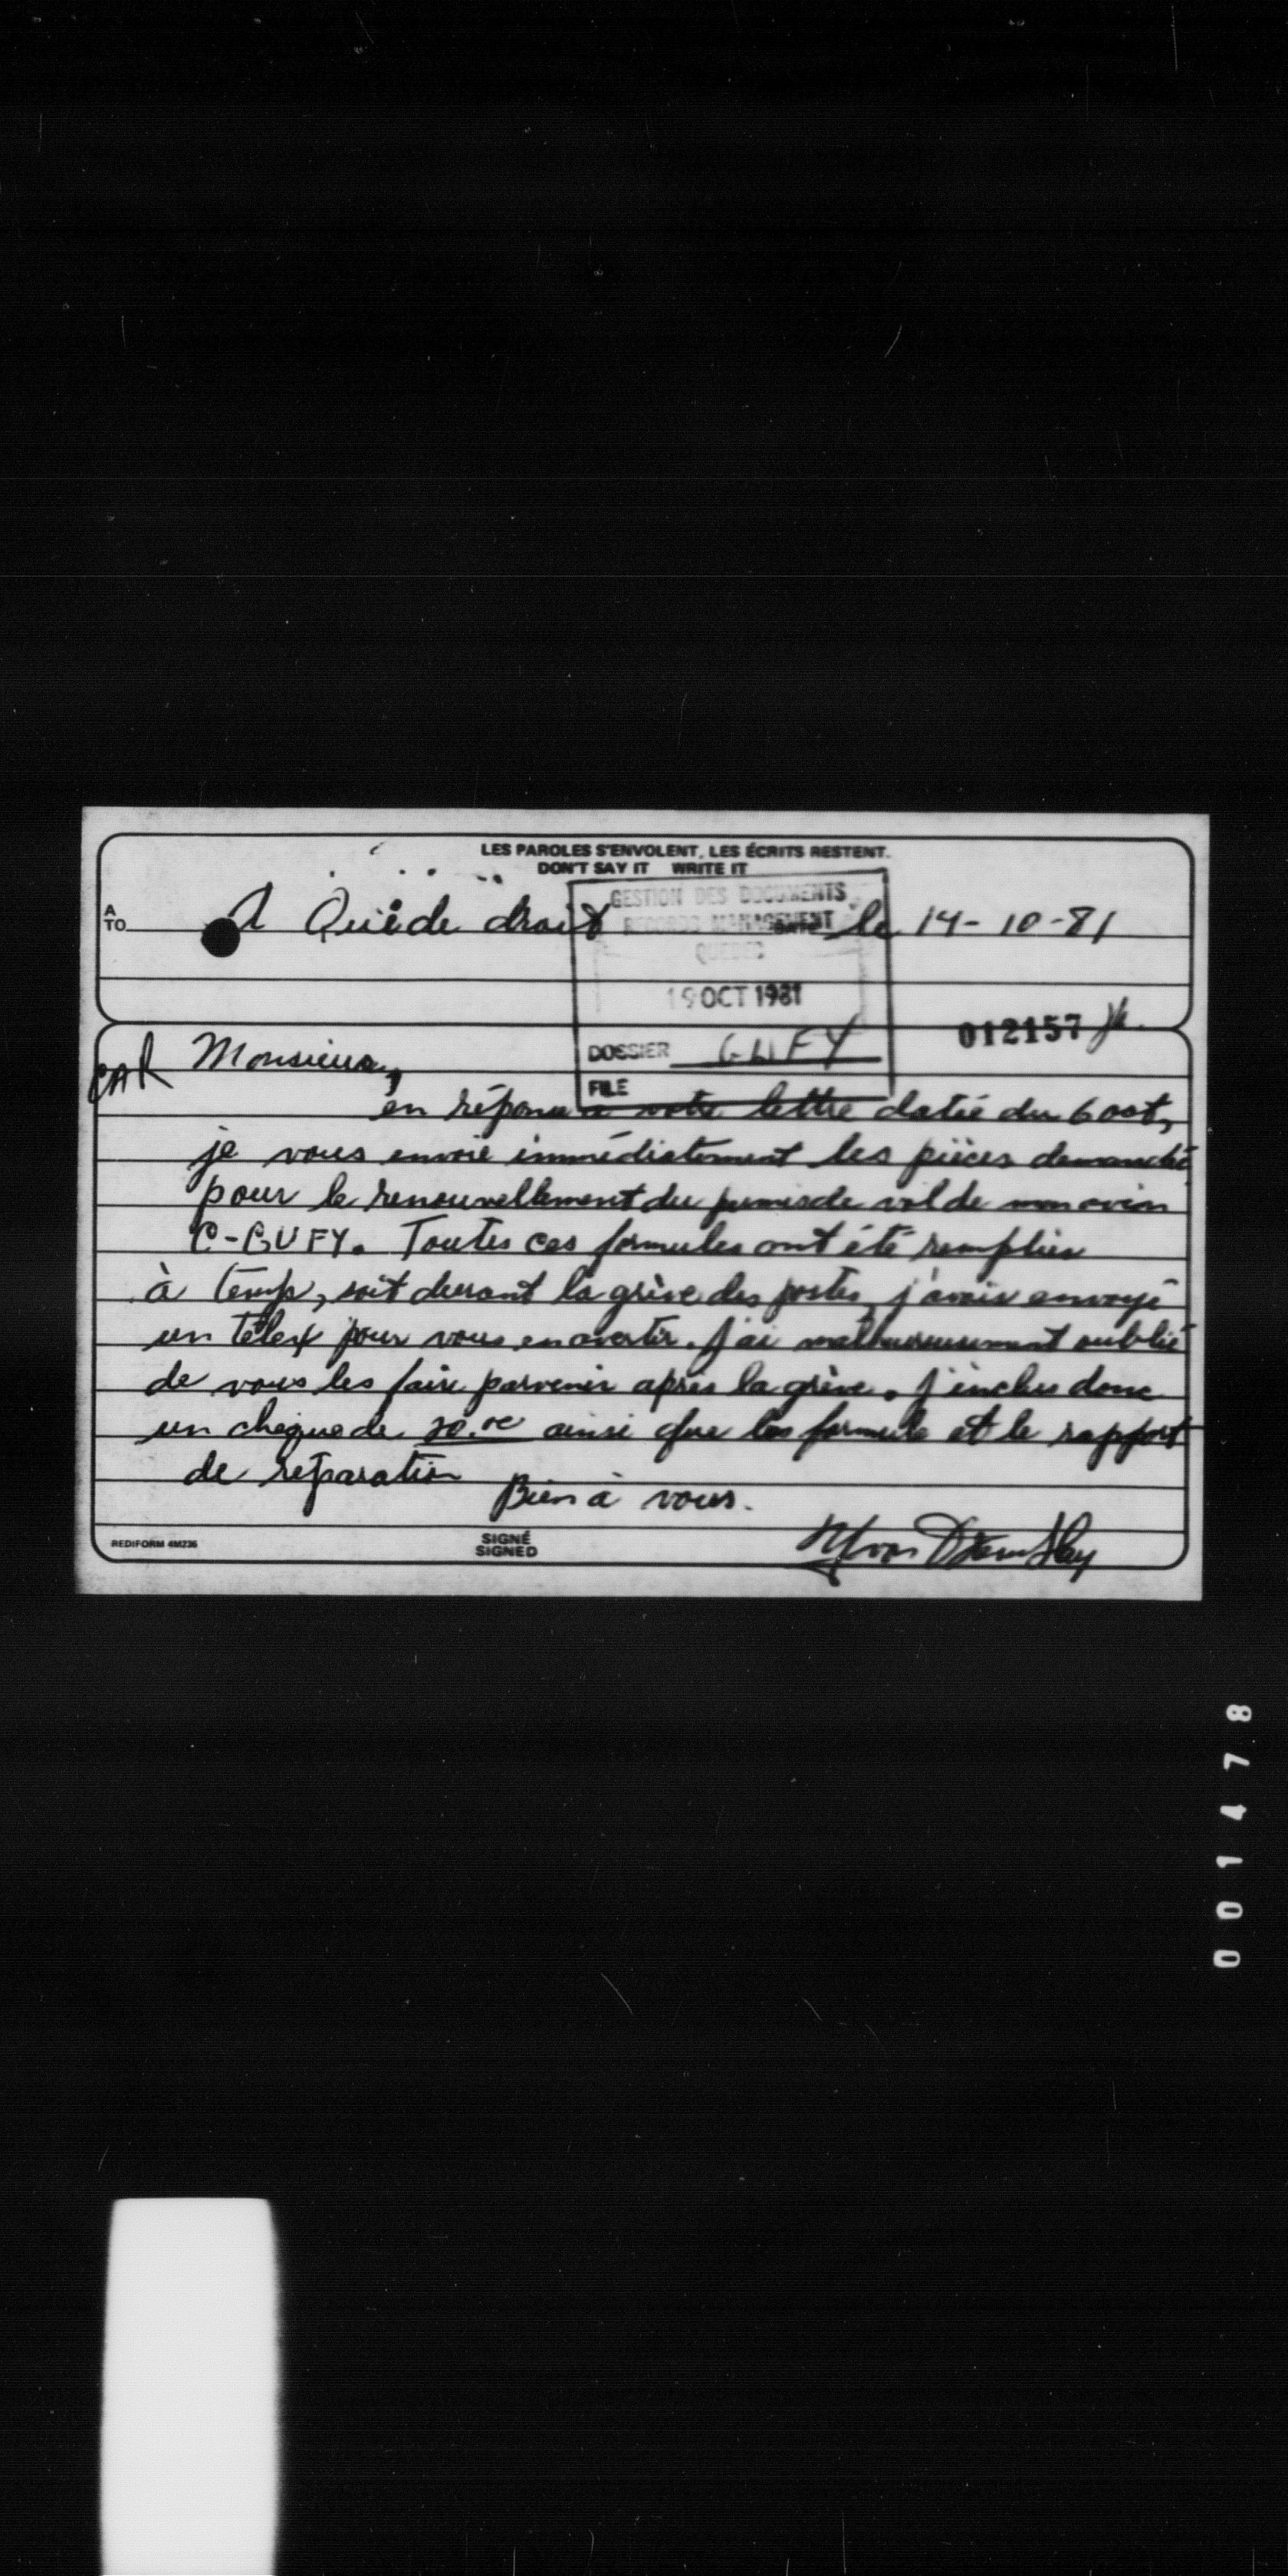 LES PAROLES S'ENVOLENT, LES ÉCRITS RESTENT.
DON'T SAY IT WRITE IT
A
TO
A Qui de droit
DATE
le 14-10-81
GESTION DES DOCUMENTS
RECORDS MANAGEMENT
QUEBEC
19 OCT 1981
DOSSIER GUFY
FILE
012157
CAR
Monsieur,
en réponse à votre lettre datée du 6 oct,
je vous envoie immédiatement les pièces demandé
pour le renouvellement du permis de vol de mon avion
C-GUFY. Toutes ces formules ont été remplies
à temp, soit durant la grève des postes, j'avais envoyé
un télex pour vous en avertir. J'ai malheureusement oublié
de vous les faire parvenir après la grève. J'inclus donc
un chèque de ainsi que les formule et le rapport
de réparation
Bien à vous.
REDIFORM 4M236
SIGNÉ
SIGNED
Yvon
001478